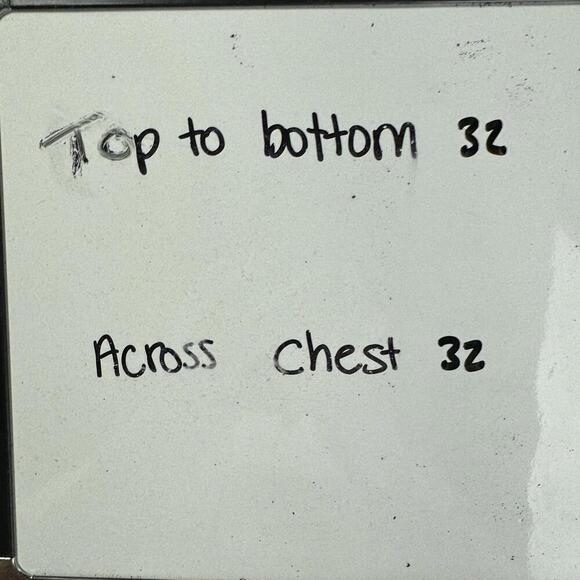 Top to bottom 32
Across Chest 32